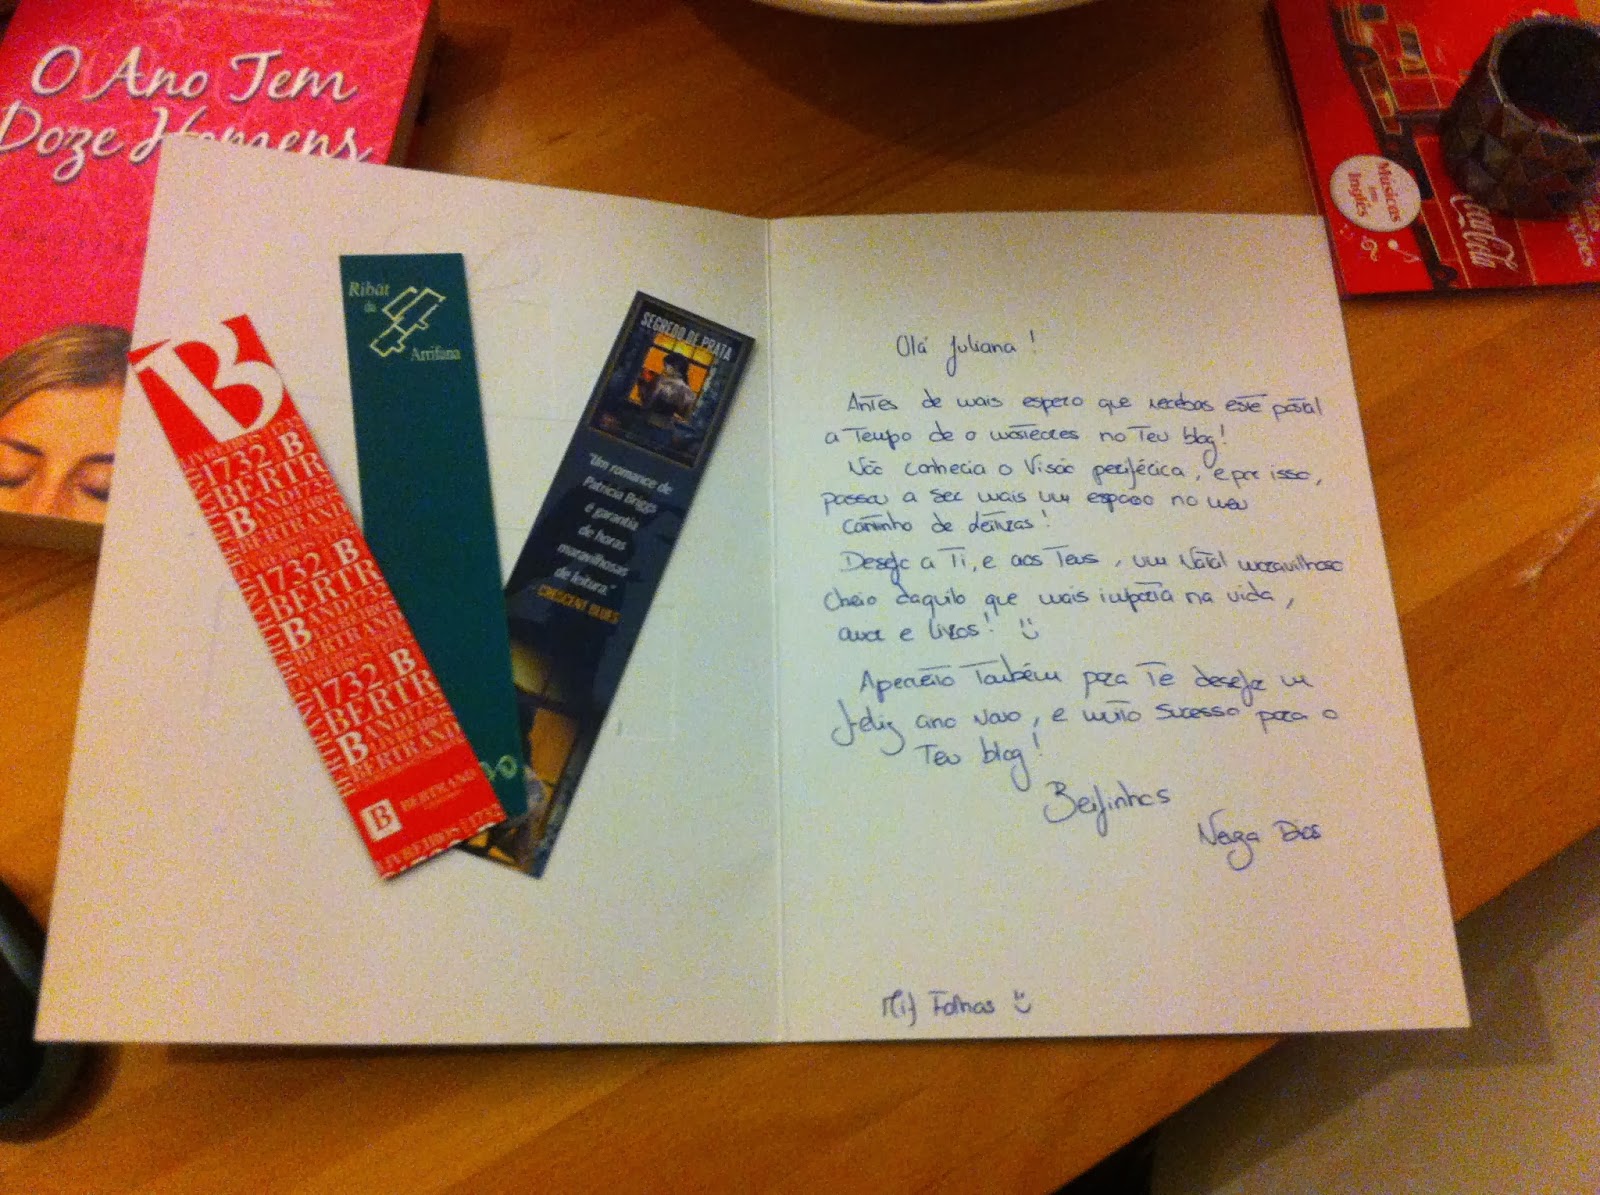 O Ano Tem
Doze Homens
Músicas
em
Inglês
Coca-Cola
B
1732 B
BERTR
BAND1732
BERTRAND
1732 B
BERTR
BAND1732
BERTRAND
1732 B
BERTR
BAND1732
BERTRAND
B BERTRAND
LIVREIROS 1732
Ribāt
da
Arrifana
SEGREDO DE PRATA
"Um romance de
Patricia Briggs
é garantia
de horas
maravilhosas
de leitura."
CRESCENT BLUES
Olá Juliana!
Antes de mais espero que recebas este postal
a tempo de o mostrares no teu blog!
Não conhecia o Visão periférica, e por isso,
passou a ser mais um espaço no meu
caminho de leituras!
Desejo a Ti, e aos Teus, um Natal maravilhoso
cheio daquilo que mais importa na vida,
amor e livros!
Aproveito também para Te desejar um
feliz ano novo, e muito sucesso para o
Teu blog!
Beijinhos
Neuza Dias
Mil Folhas